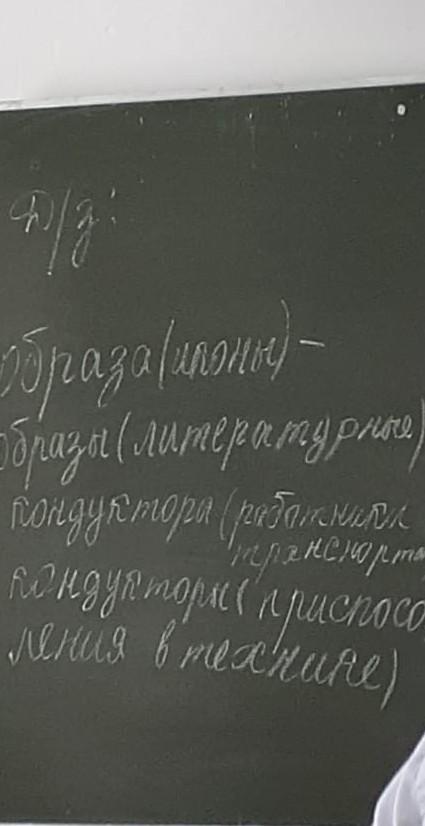 Д/з:
образа (иконы) –
образы (литературные)
кондуктора (работники
транспорта
кондукторы (приспособ
ления в технике)